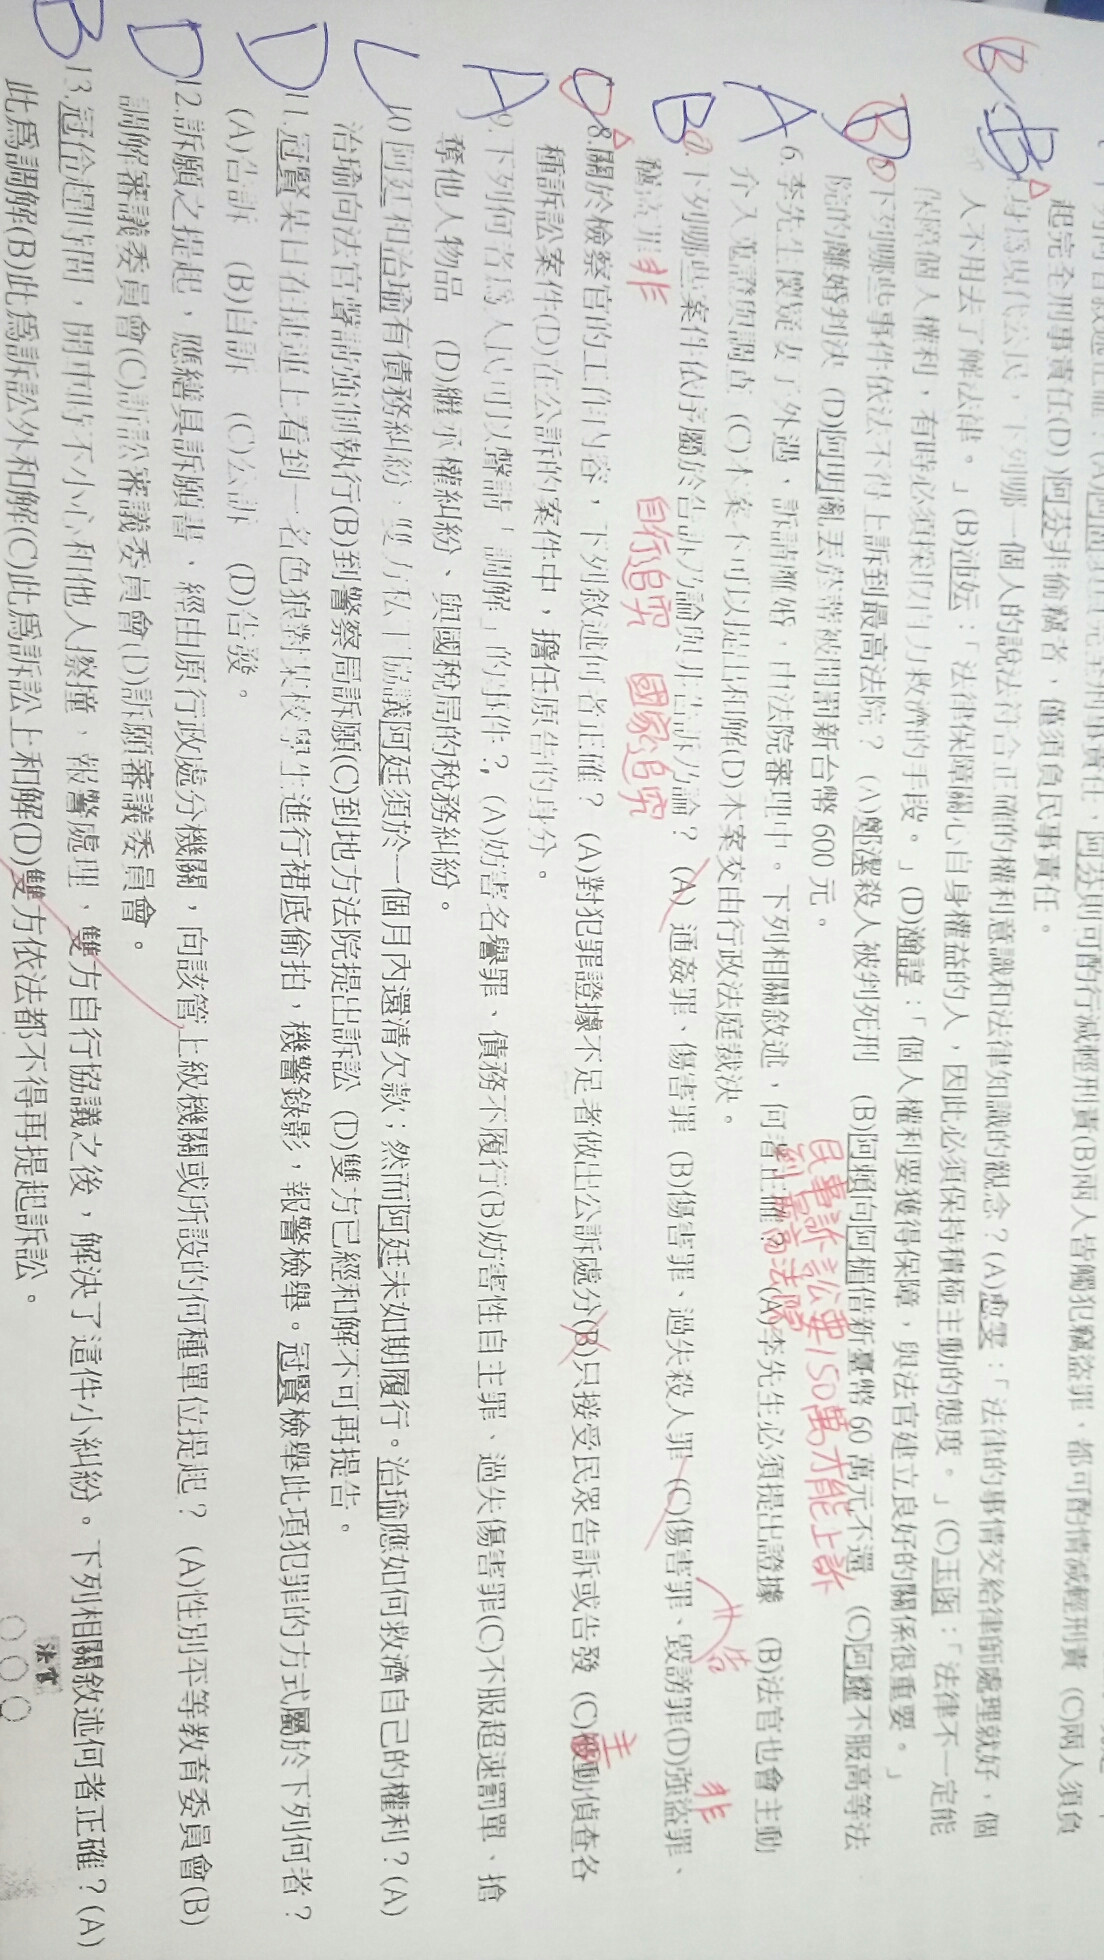 起完全刑事責任(D)阿芬非偷竊者，僅須負民事責任。
B B 身為現代公民，下列哪一個人的說法符合正確的權利意識和法律知識的觀念？(A)愈雯：「法律的事情交給律師處理就好，個
人不用去了解法律。」(B)沛妘：法律保障關心自身權益的人，因此必須保持積極主動的態度。」(C)玉函：「法律不一定能
保障個人權利，有時必須採取自力救濟的手段。」(D)瀚諄：「個人權利要獲得保障，與法官建立良好的關係很重要。」
B 下列哪些事件依法不得上訴到最高法院？ (A)鄭潔殺人被判死刑 (B)阿頻向阿楣借新臺幣 60 萬元不還 (C)阿耀不服高等法
院的離婚判決 (D)阿明亂丟菸蒂被開罰新台幣 600 元。
民事訴訟要150萬才能上訴
到最高法院
A 6.李先生懷疑妻子外遇，訴請離婚，由法院審理中。下列相關敘述，何者正確？(A)李先生必須提出證據 (B)法官也會主動
介入蒐證與調查 (C)本案不可以提出和解(D)本案交由行政法庭裁決。
告
B 下列哪些案件依序屬於告訴乃論與非告訴乃論？ (A) 通姦罪、傷害罪 (B)傷害罪、過失殺人罪 (C)傷害罪、毀謗罪(D)強盜罪、
竊盜罪 非 自行追究 國家追究 非
8.關於檢察官的工作內容，下列敘述何者正確？ (A)對犯罪證據不足者做出公訴處分(B)只接受民眾告訴或告發 (C)被動偵查各
主
種訴訟案件(D)在公訴的案件中，擔任原告的身分。
A 9.下列何者為人民可以聲請「調解」的事件？，(A)妨害名譽罪、債務不履行(B)妨害性自主罪、過失傷害罪(C)不服超速罰單、搶
奪他人物品 (D)繼承權糾紛、與國稅局的稅務糾紛。
10.阿廷和治瑜有債務糾紛，雙方私下協議阿廷須於一個月內還清欠款；然而阿廷未如期履行。治瑜應如何救濟自己的權利？(A)
治瑜向法官聲請強制執行(B)到警察局訴願(C)到地方法院提出訴訟 (D)雙方已經和解不可再提告。
D 11.冠賢某日在捷運上看到一名色狼對某校學生進行裙底偷拍，機警錄影，報警檢舉。冠賢檢舉此項犯罪的方式屬於下列何者？
(A)告訴 (B)自訴 (C)公訴 (D)告發。
D 12.訴願之提起，應繕具訴願書、經由原行政處分機關，向該管上級機關或所設的何種單位提起？ (A)性別平等教育委員會(B)
調解審議委員會(C)訴訟審議委員會(D)訴願審議委員會。
法官
B 13.冠佁趕時間，開車時不小心和他人擦撞，報警處理，雙方自行協議之後，解決了這件小糾紛。下列相關敘述何者正確？(A)
此為調解(B)此為訴訟外和解(C)此為訴訟上和解(D)雙方依法都不得再提起訴訟。